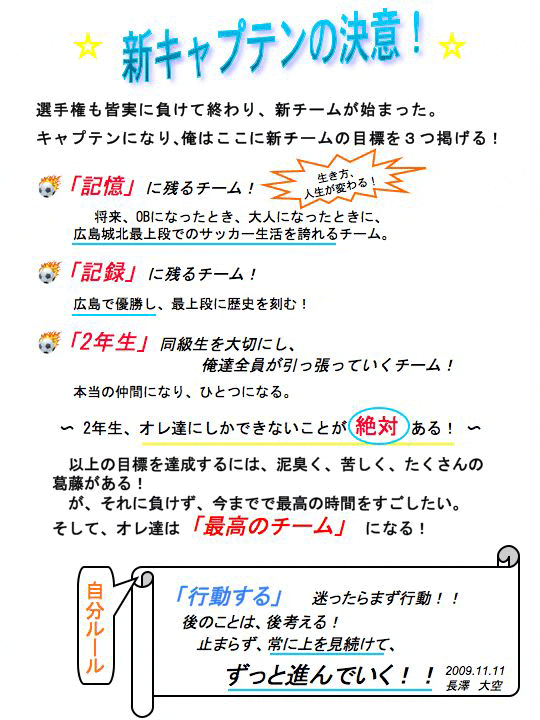 ☆ 新キャプテンの決意！ ☆
選手権も皆実に負けて終わり、新チームが始まった。
キャプテンになり、俺はここに新チームの目標を３つ掲げる！
「記憶」に残るチーム！
生き方、
人生が変わる！
将来、OBになったとき、大人になったときに、
広島城北最上段でのサッカー生活を誇れるチーム。
「記録」に残るチーム！
広島で優勝し、最上段に歴史を刻む！
「2年生」同級生を大切にし、
俺達全員が引っ張っていくチーム！
本当の仲間になり、ひとつになる。
～ 2年生、オレ達にしかできないことが 絶対 ある！ ～
以上の目標を達成するには、泥臭く、苦しく、たくさんの
葛藤がある！
が、それに負けず、今までで最高の時間をすごしたい。
そして、オレ達は「最高のチーム」 になる！
自分ルール
「行動する」 迷ったらまず行動！！
後のことは、後考える！
止まらず、常に上を見続けて、
ずっと進んでいく！！
2009.11.11
長澤 大空